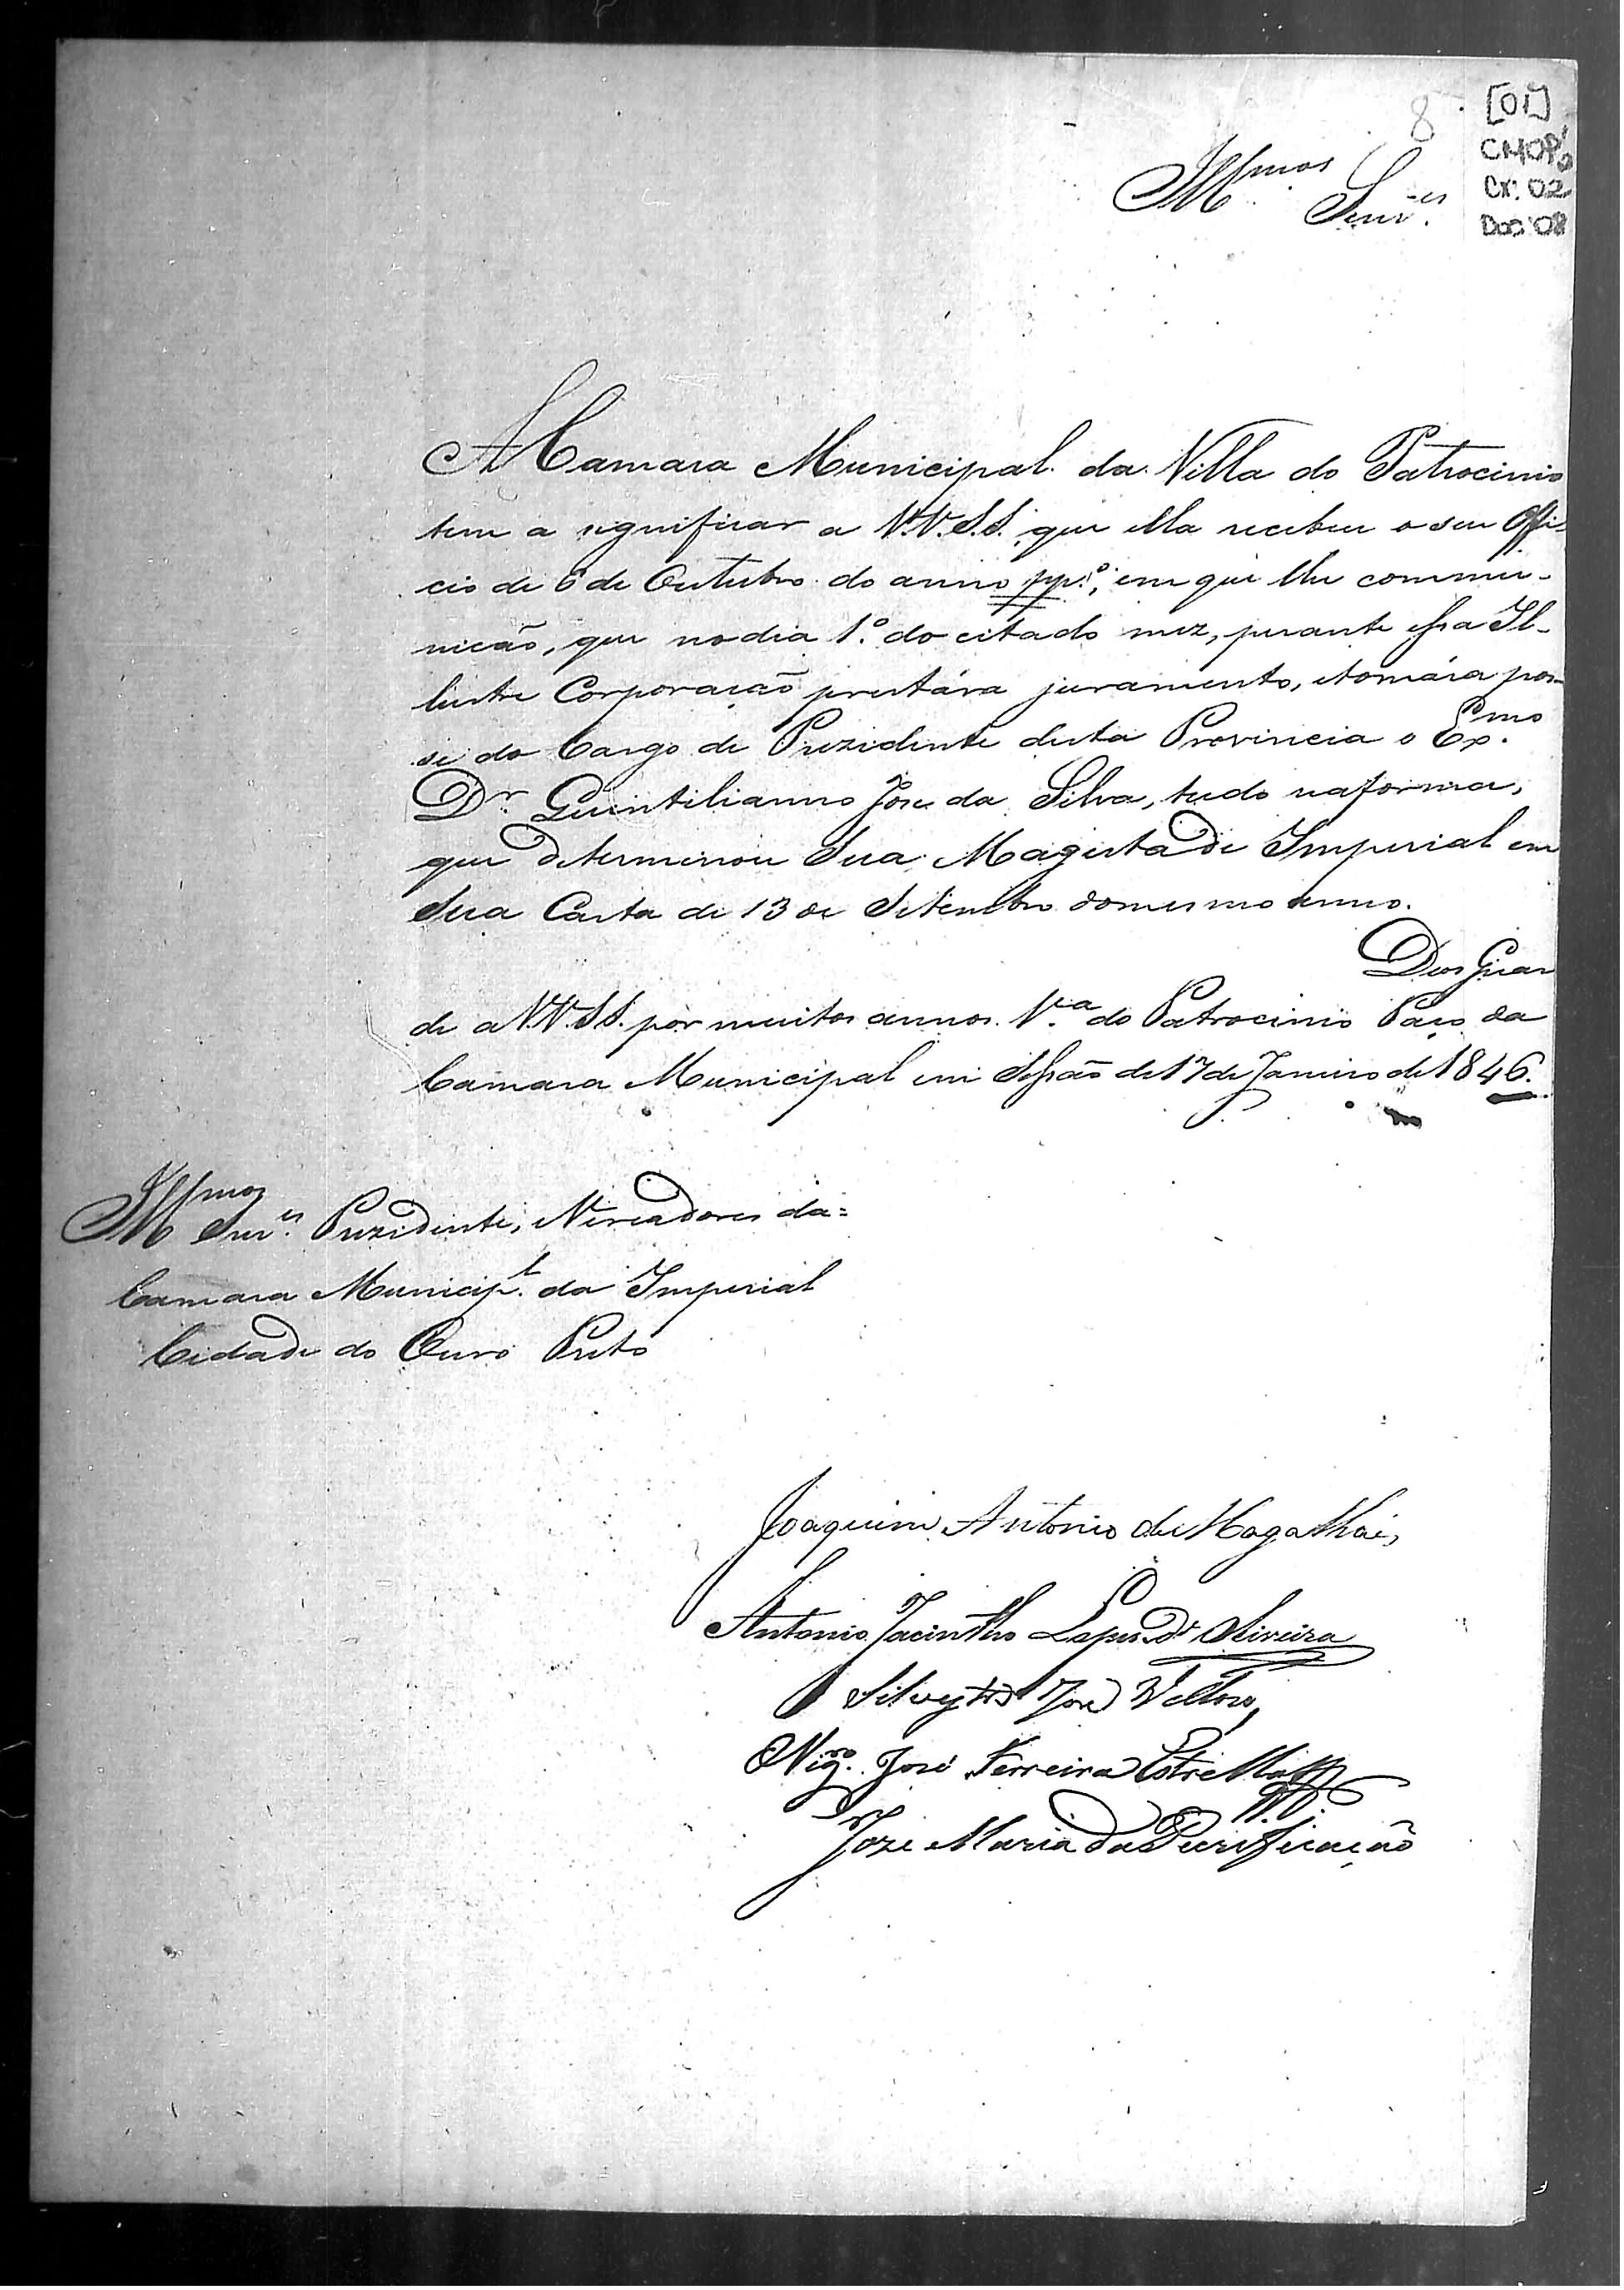 8
[01]
CMOP
Cx. 02
Doc. 08
Illmos Senres.
A Camara Municipal da Villa do Patrocinio
tem a significar a V.V.S.S. que ella recebeu o seu Offi-
cio de 6 de Outubro do anno pp.º, em que lhe commu-
nicão, que no dia 1.º do citado mez, perante essa Il-
lustre Corporação prestára juramento, e tomára pos-
se do Cargo de Prezidente desta Provincia o Exmo.
Dr. Quintilianno Jose da Silva, tudo na forma,
que determinou Sua Magestade Imperial em
Sua Carta de 13 de Setembro do mesmo anno.
Deos Guar
de a V.V.S.S. por muitos annos. Va. do Patrocinio Paço da
Camara Municipal em Sessão de 17 de Janeiro de 1846.
Illmos Senres. Prezidente, e Vereadores da=
Camara Municipl. da Imperial
Cidade do Ouro Preto
Joaquim Antonio de Magalhães
Antonio Jacintho Lopes de Oliveira
José Velloso
O Vigro. José Ferreira Estrella
Joze Maria da Purificação